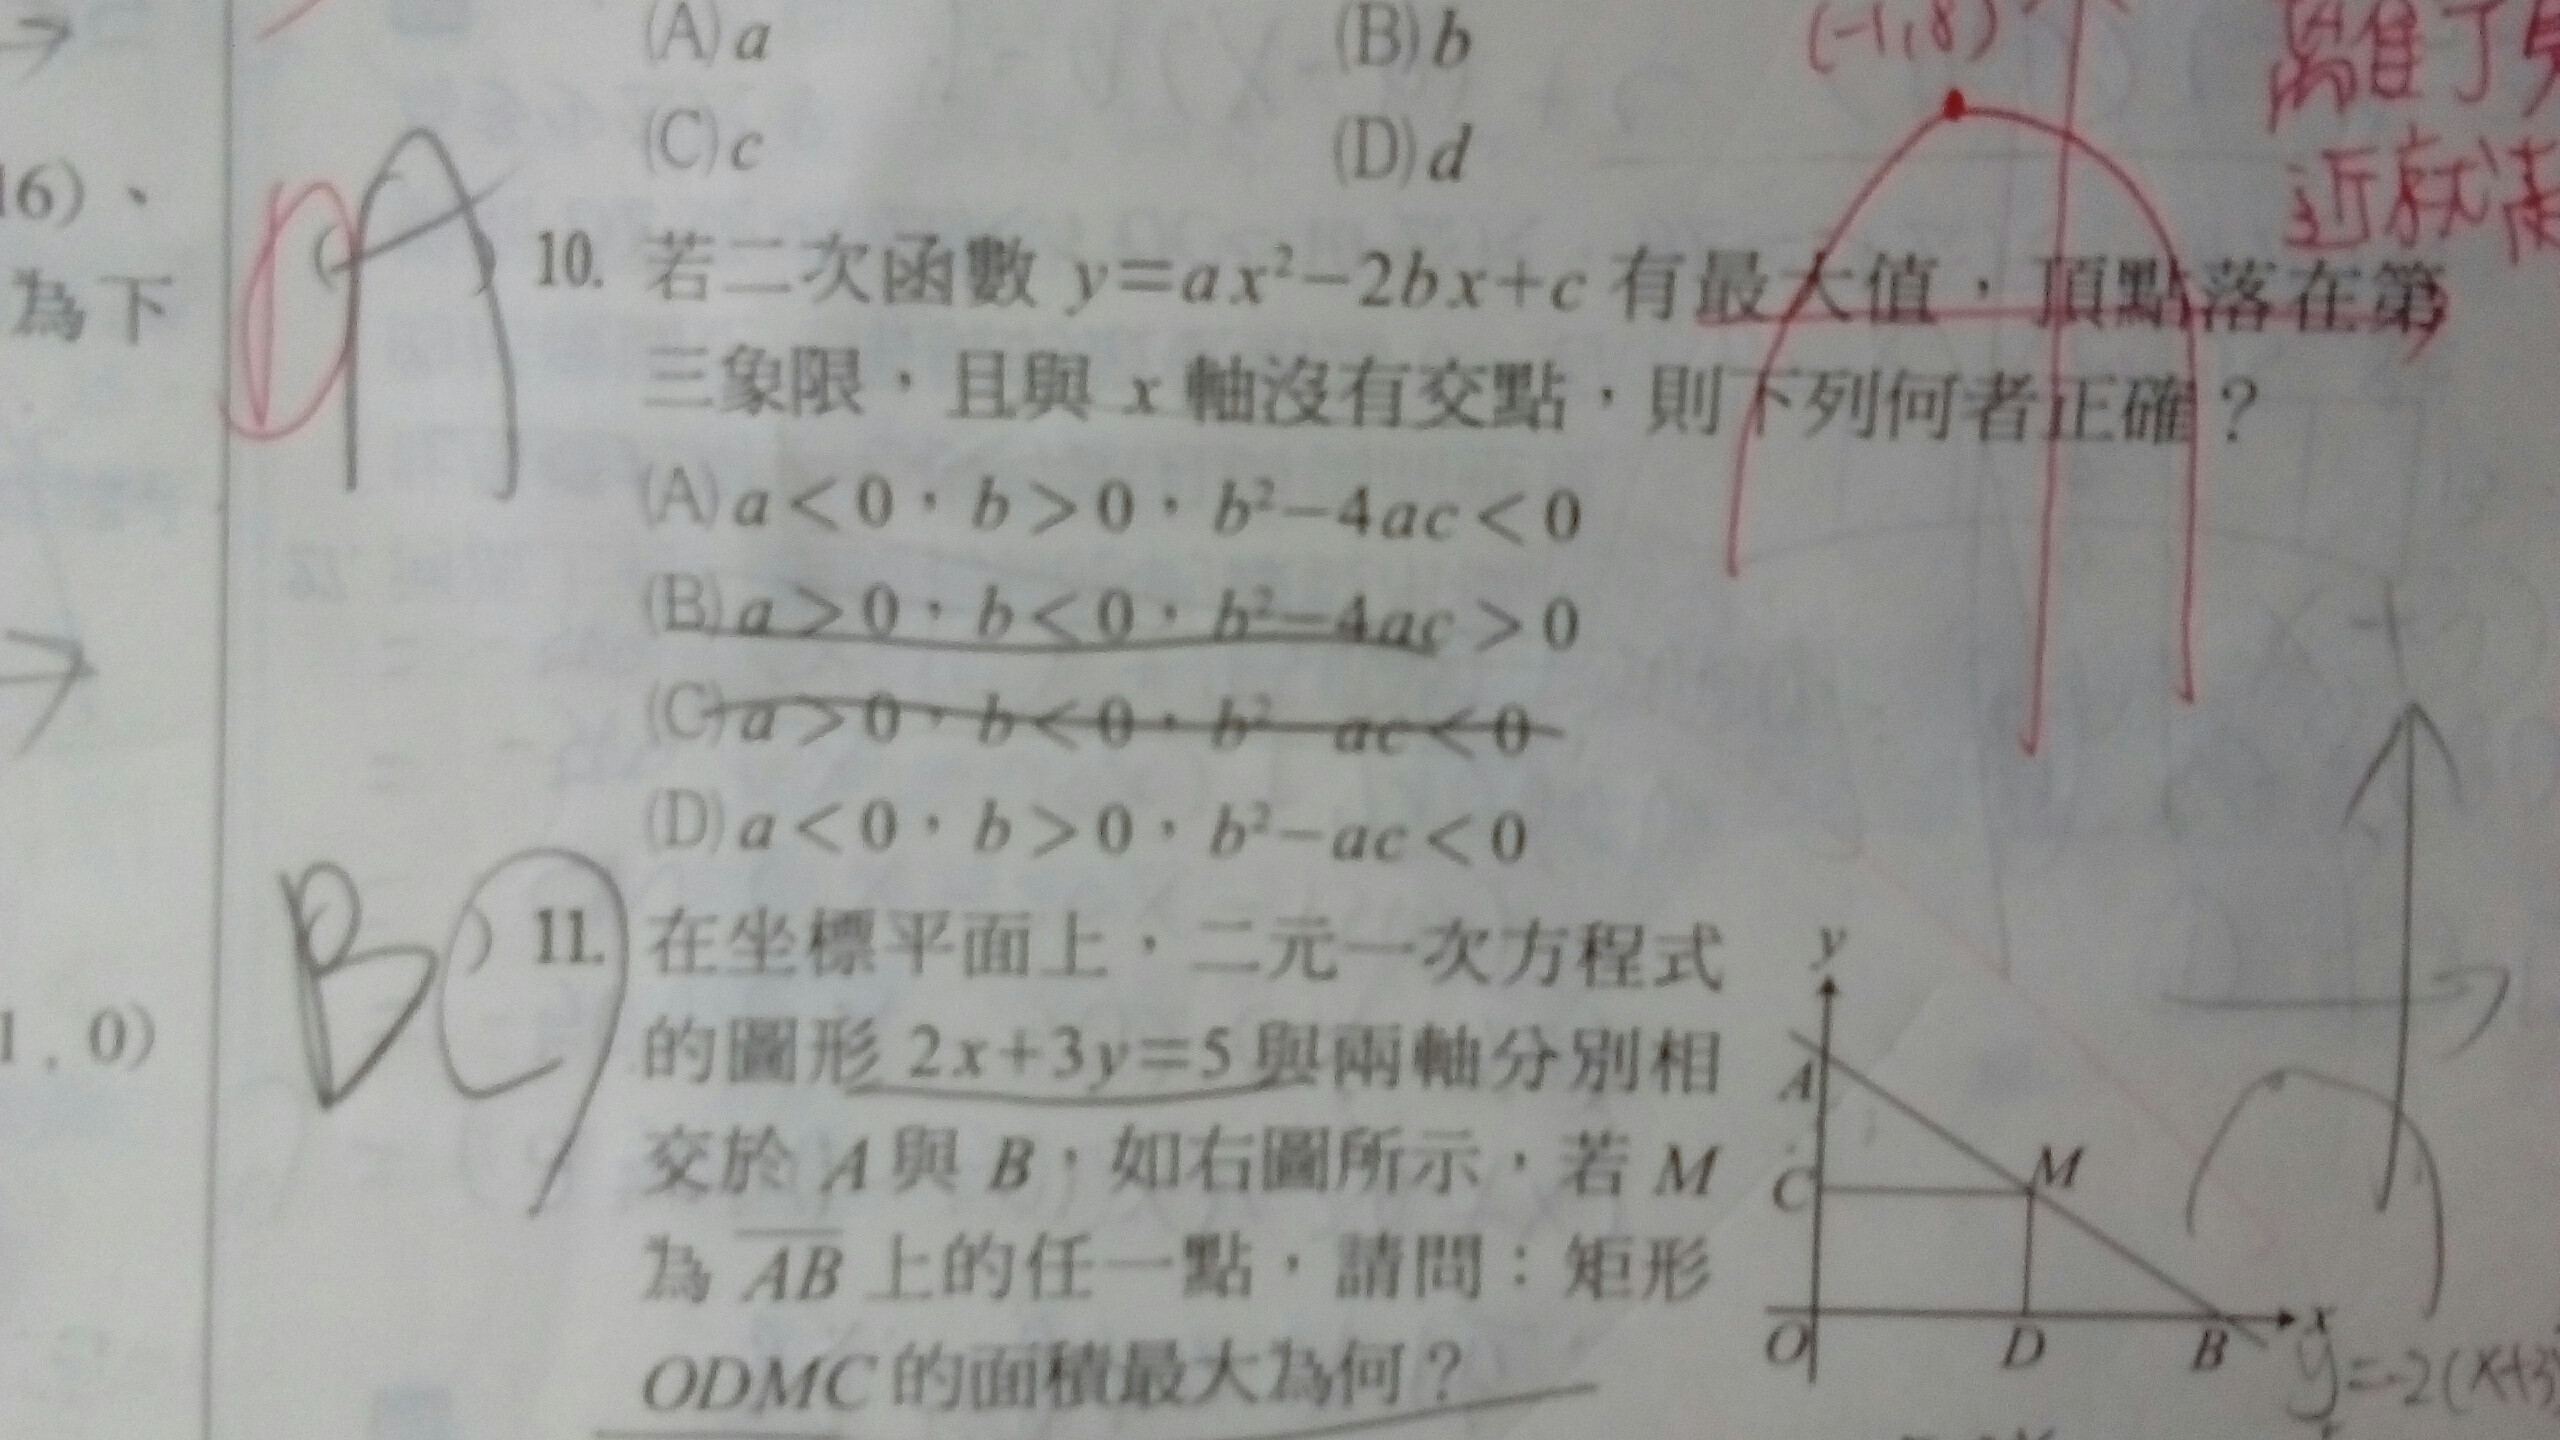 (A) a
(B) b
(-1,8)
(C) c
(D) d
離
近就
16)、
為下
A
10. 若二次函數 y=ax²-2bx+c 有最大值，頂點落在第
三象限，且與 x 軸沒有交點，則下列何者正確？
(A) a<0，b>0，b²-4ac<0
(B) a>0，b<0，b²-4ac>0
(C) a>0，b<0，b²-ac<0
(D) a<0，b>0，b²-ac<0
1,0)
B
11. 在坐標平面上，二元一次方程式
的圖形 2x+3y=5 與兩軸分別相
交於 A 與 B，如右圖所示，若 M
為 AB 上的任一點，請問：矩形
ODMC 的面積最大為何？
y
A
C
M
O
D
B
x
y=-2(x+3)